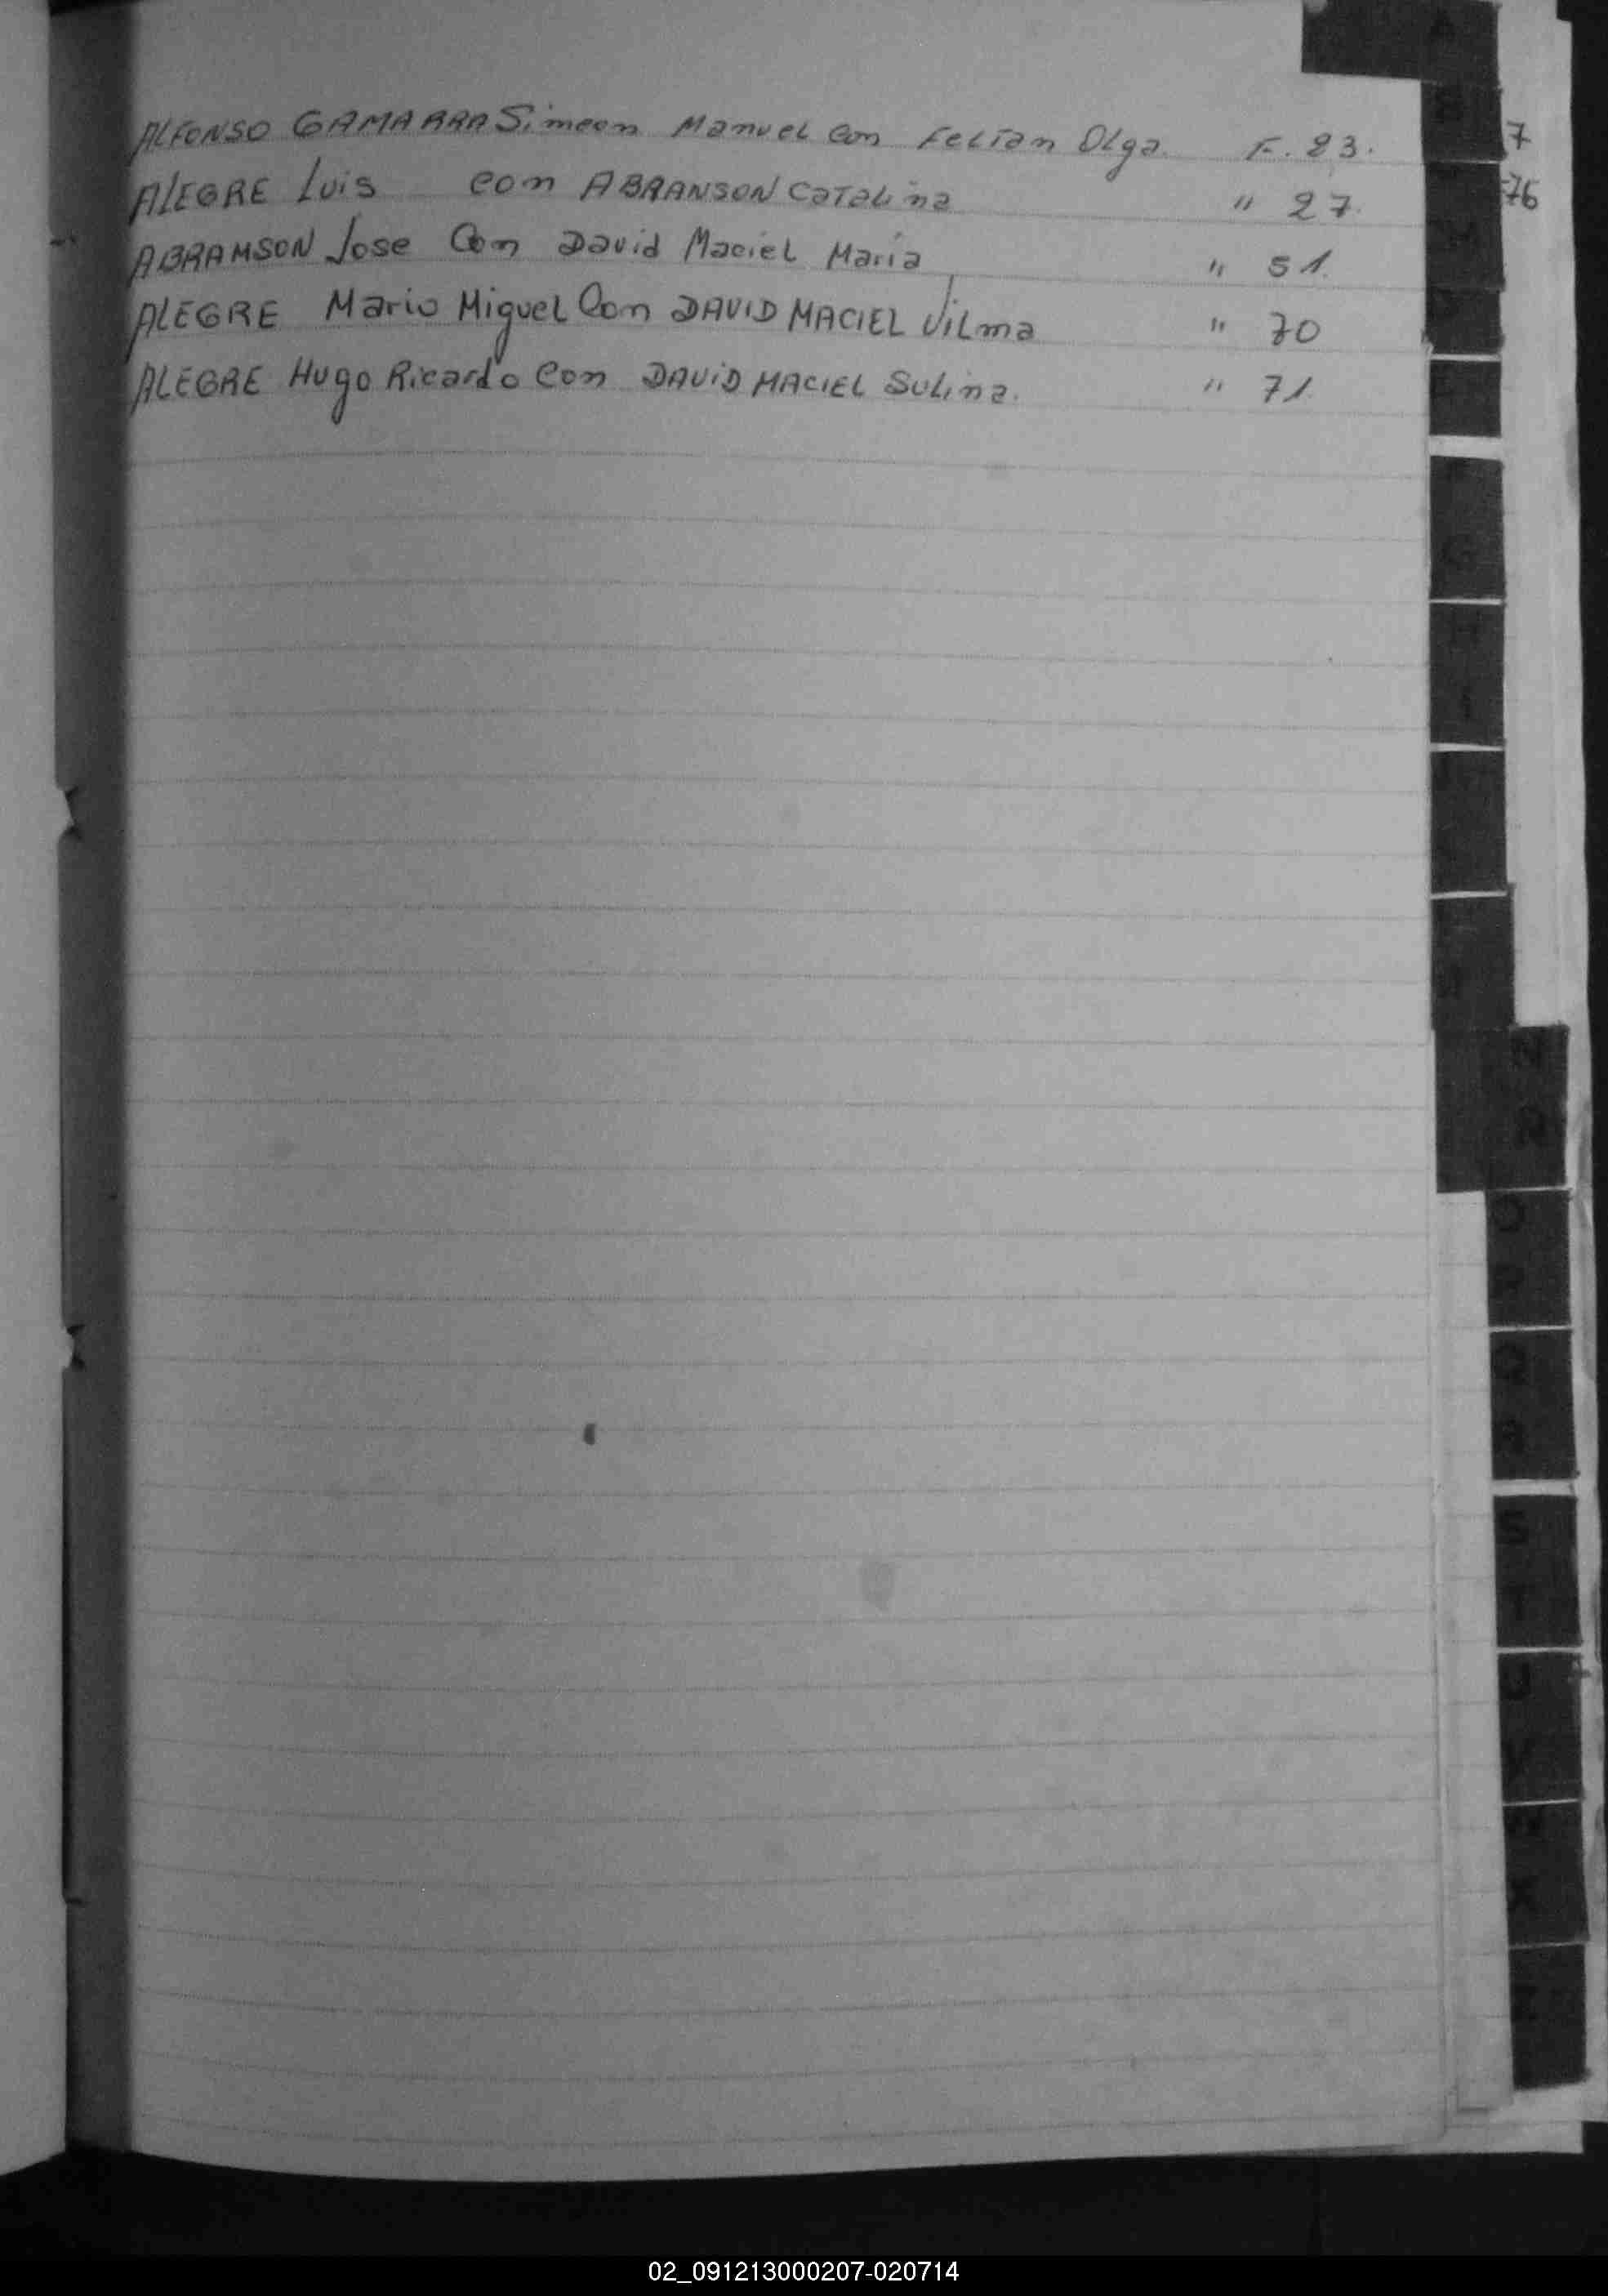 ALFONSO GAMARRA Simeon Manuel Con Feltan Olga. F. 23.
ALEGRE Luis con ABRANSON Catalina " 27.
ABRAMSON Jose Con David Maciel Maria " 51.
ALEGRE Mario Miguel Con DAVID MACIEL Vilma " 70
ALEGRE Hugo Ricardo Con DAVID MACIEL Sulina. " 71.
7
76
A
B
M
G
H
I
N
O
P
Q
R
S
T
U
V
W
X
Z
02_091213000207-020714